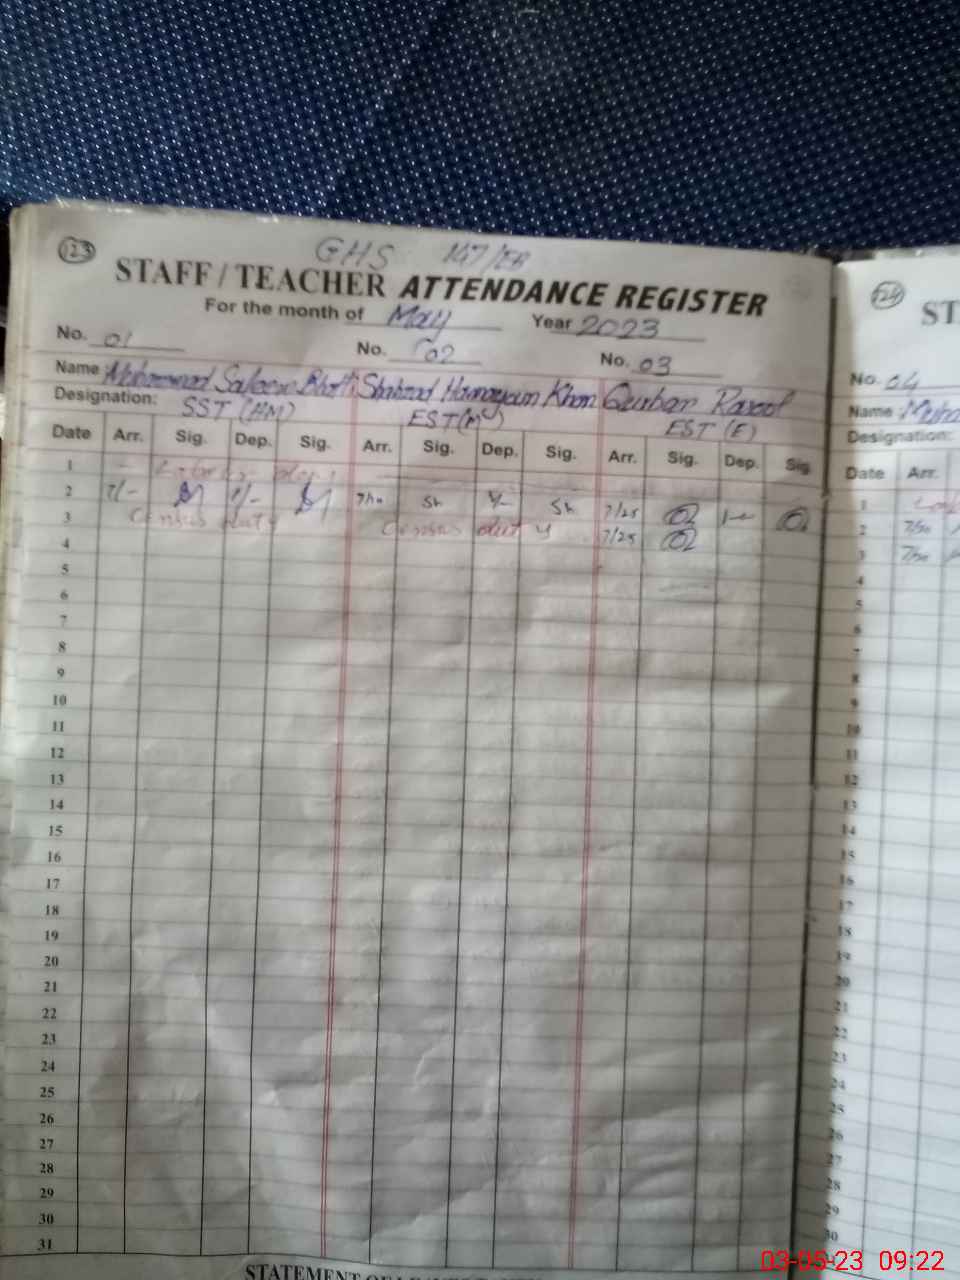 123
GHS 147/EB
STAFF / TEACHER ATTENDANCE REGISTER
For the month of May Year 2023
No. 01 No. 02 No. 03
Name Mohammad Saleem Bhatti Shahzad Hamayoun Khan Qurban Rasool
Designation: SST (HM) EST(M) EST (E)
Date Arr. Sig. Dep. Sig. Arr. Sig. Dep. Sig. Arr. Sig. Dep. Sig.
1
2 7/- 7/30 Sh Sh 7/25
3 Census duty Census duty 7/25
4
5
6
7
8
9
10
11
12
13
14
15
16
17
18
19
20
21
22
23
24
25
26
27
28
29
30
31
124
ST
No. 04
Name
Designation:
Date Arr.
1
2 7/30
3 7/30
4
5
6
7
8
9
10
11
12
13
14
15
16
17
18
19
20
21
22
23
24
25
26
27
28
29
30
STATEMENT OF
03-05-23 09:22